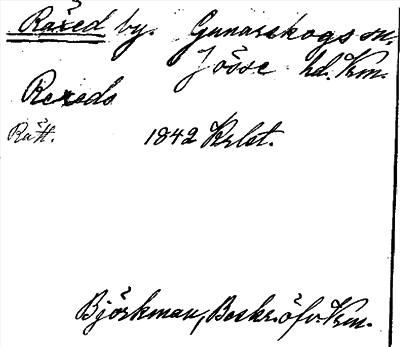 Råxed by. Gunarskogs sn.
Jösse hd. Vrm.
Rexeds
Rätt. 1842 Krlst.
Björkman, Beskr. öfv. Vrm.